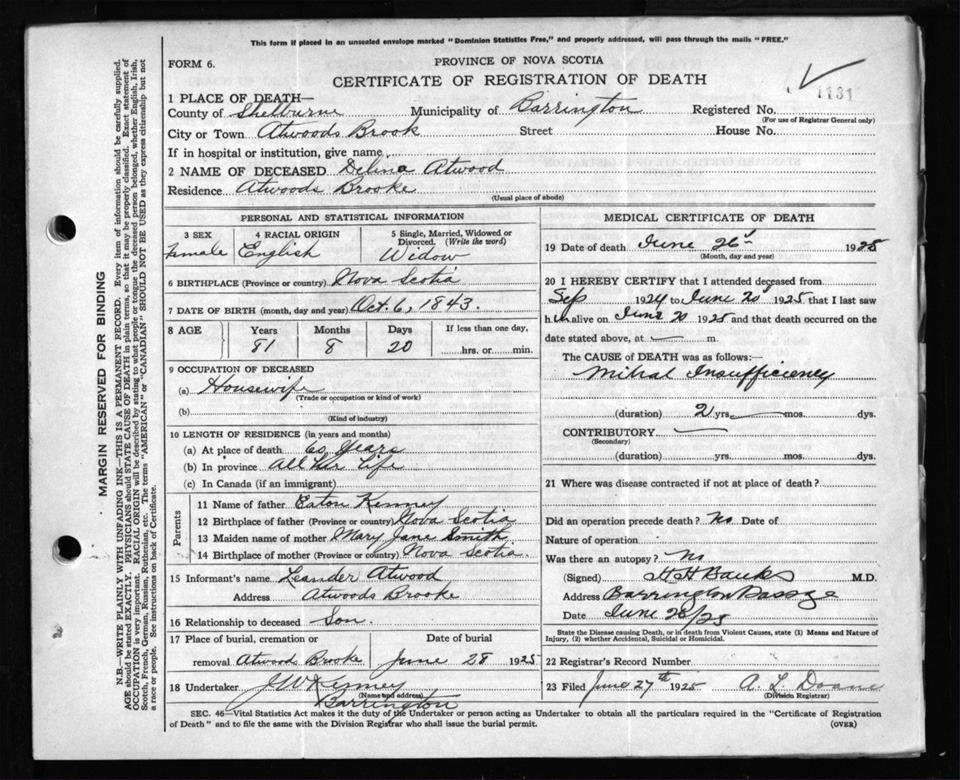 This form if placed in an unsealed envelope marked "Dominion Statistics Free," and properly addressed, will pass through the mails "FREE."
FORM 6.
PROVINCE OF NOVA SCOTIA
CERTIFICATE OF REGISTRATION OF DEATH
1131
1 PLACE OF DEATH—
County of Shelburne Municipality of Barrington Registered No.
(For use of Registrar General only)
City or Town Atwoods Brook Street House No.
If in hospital or institution, give name
2 NAME OF DECEASED Delina Atwood
Residence Atwoods Brooke
(Usual place of abode)
PERSONAL AND STATISTICAL INFORMATION
3 SEX 4 RACIAL ORIGIN 5 Single, Married, Widowed or Divorced. (Write the word)
Female English Widow
6 BIRTHPLACE (Province or country) Nova Scotia
7 DATE OF BIRTH (month, day and year) Oct. 6, 1843.
8 AGE Years Months Days If less than one day,
81 8 20 hrs. or min.
9 OCCUPATION OF DECEASED
(a) Housewife
(Trade or occupation or kind of work)
(b)
(Kind of industry)
10 LENGTH OF RESIDENCE (in years and months)
(a) At place of death 60 Years
(b) In province All her life
(c) In Canada (if an immigrant)
Parents
11 Name of father Eaton Kenney
12 Birthplace of father (Province or country) Nova Scotia
13 Maiden name of mother Mary Jane Smith
14 Birthplace of mother (Province or country) Nova Scotia.
15 Informant's name Leander Atwood
Address Atwoods Brooke
16 Relationship to deceased Son.
17 Place of burial, cremation or Date of burial
removal Atwoods Brooke June 28 1925
18 Undertaker J W Kenney
(Name and address)
Barrington
MEDICAL CERTIFICATE OF DEATH
19 Date of death June 26 1925
(Month, day and year)
20 I HEREBY CERTIFY that I attended deceased from
Sep 1924 to June 20 1925 that I last saw
h er alive on June 20 1925 and that death occurred on the
date stated above, at m.
The CAUSE of DEATH was as follows:
Mitral Insufficiency
(duration) 2 yrs. mos. dys.
CONTRIBUTORY
(Secondary)
(duration) yrs. mos. dys.
21 Where was disease contracted if not at place of death?
Did an operation precede death? No Date of
Nature of operation
Was there an autopsy? No
(Signed) H H Banks M.D.
Address Barrington Passage
Date June 28/25
State the Disease causing Death, or in death from Violent Causes, state (1) Means and Nature of Injury, (2) whether Accidental, Suicidal or Homicidal.
22 Registrar's Record Number
23 Filed June 27th 1925 A. L. Doane
(Division Registrar)
SEC. 46—Vital Statistics Act makes it the duty of the Undertaker or person acting as Undertaker to obtain all the particulars required in the "Certificate of Registration
of Death" and to file the same with the Division Registrar who shall issue the burial permit. (OVER)
MARGIN RESERVED FOR BINDING
N.B.—WRITE PLAINLY WITH UNFADING INK—THIS IS A PERMANENT RECORD. Every item of information should be carefully supplied.
AGE should be stated EXACTLY. PHYSICIANS should STATE CAUSE OF DEATH in plain terms, so that it may be properly classified. Exact statement of
OCCUPATION is very important. RACIAL ORIGIN will be described by stating to what people or tongue the deceased person belonged, whether English, Irish,
Scotch, French, German, Russian, Ruthenian, etc. The terms "AMERICAN" or "CANADIAN" SHOULD NOT BE USED as they express citizenship but not
a race or people. See instructions on back of Certificate.